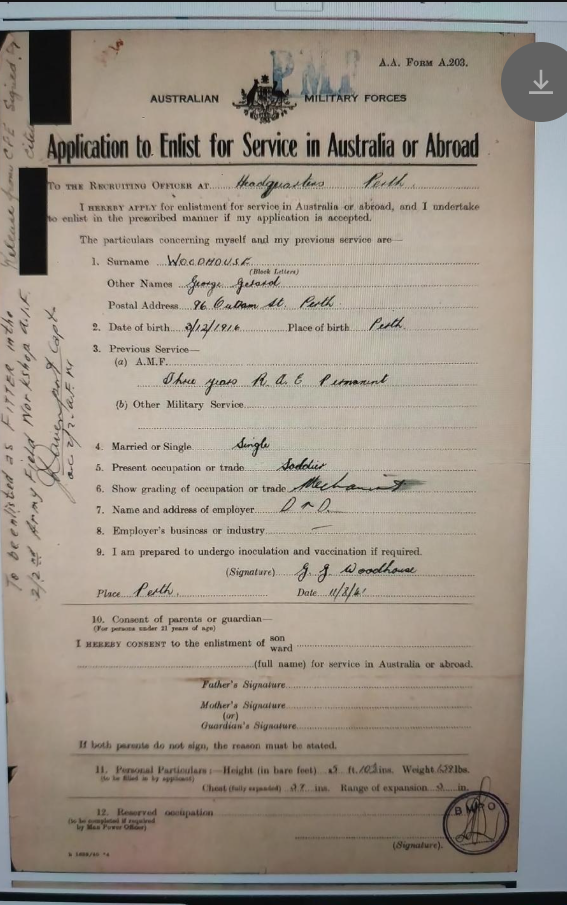 PMF
A.A. FORM A.203.
AUSTRALIAN MILITARY FORCES
Application to Enlist for Service in Australia or Abroad
TO THE RECRUITING OFFICER AT Headquarters Perth.
I HEREBY APPLY for enlistment for service in Australia or abroad, and I undertake
to enlist in the prescribed manner if my application is accepted.
The particulars concerning myself and my previous service are—
1. Surname WOODHOUSE
(Block Letters)
Other Names George Gerard
Postal Address 96 St. Perth
2. Date of birth 3/12/1916 Place of birth Perth.
3. Previous Service—
(a) A.M.F.
Three years R.A.E Permanent
(b) Other Military Service
4. Married or Single Single
5. Present occupation or trade Soldier
6. Show grading of occupation or trade
7. Name and address of employer D of D.
8. Employer's business or industry —
9. I am prepared to undergo inoculation and vaccination if required.
(Signature) G. G. Woodhouse
Place Perth. Date 11/3/41
10. Consent of parents or guardian—
(For persons under 21 years of age)
I HEREBY CONSENT to the enlistment of son
ward
(full name) for service in Australia or abroad.
Father's Signature
Mother's Signature
(or)
Guardian's Signature
If both parents do not sign, the reason must be stated.
11. Personal Particulars:—Height (in bare feet) 5 ft. 10½ ins. Weight lbs.
(to be filled in by applicant)
Chest (fully expanded) 37 ins. Range of expansion 3 in.
12. Reserved occupation
(to be completed if required
by Man Power Officer)
(Signature).
To be enlisted as FITTER in the
2/2nd Army Field Workshop A.I.F.
Capt